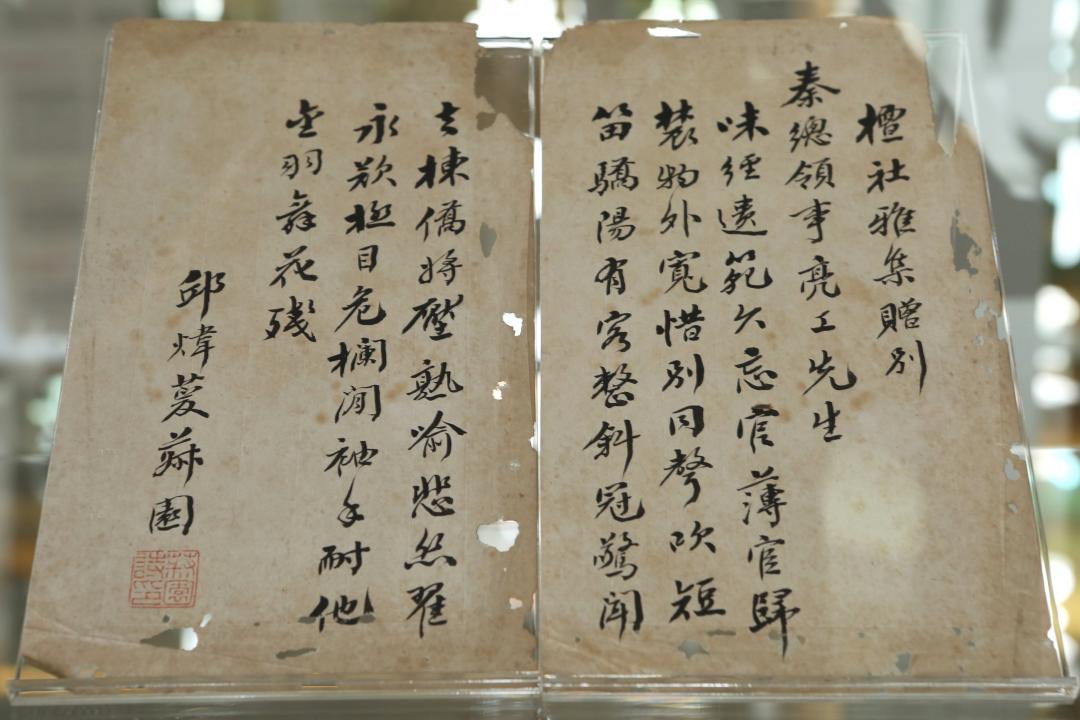 檀社雅集贈別
秦總領事亮工先生
味經遺範久忘官薄宦歸
裝物外寬惜別同聲吹短
笛驕陽有客整斜冠驚聞
去棟僑將壓熟喻悲絲翟
永歎極目危欄閒袖手耐他
金羽舞花殘
邱煒萲菽園